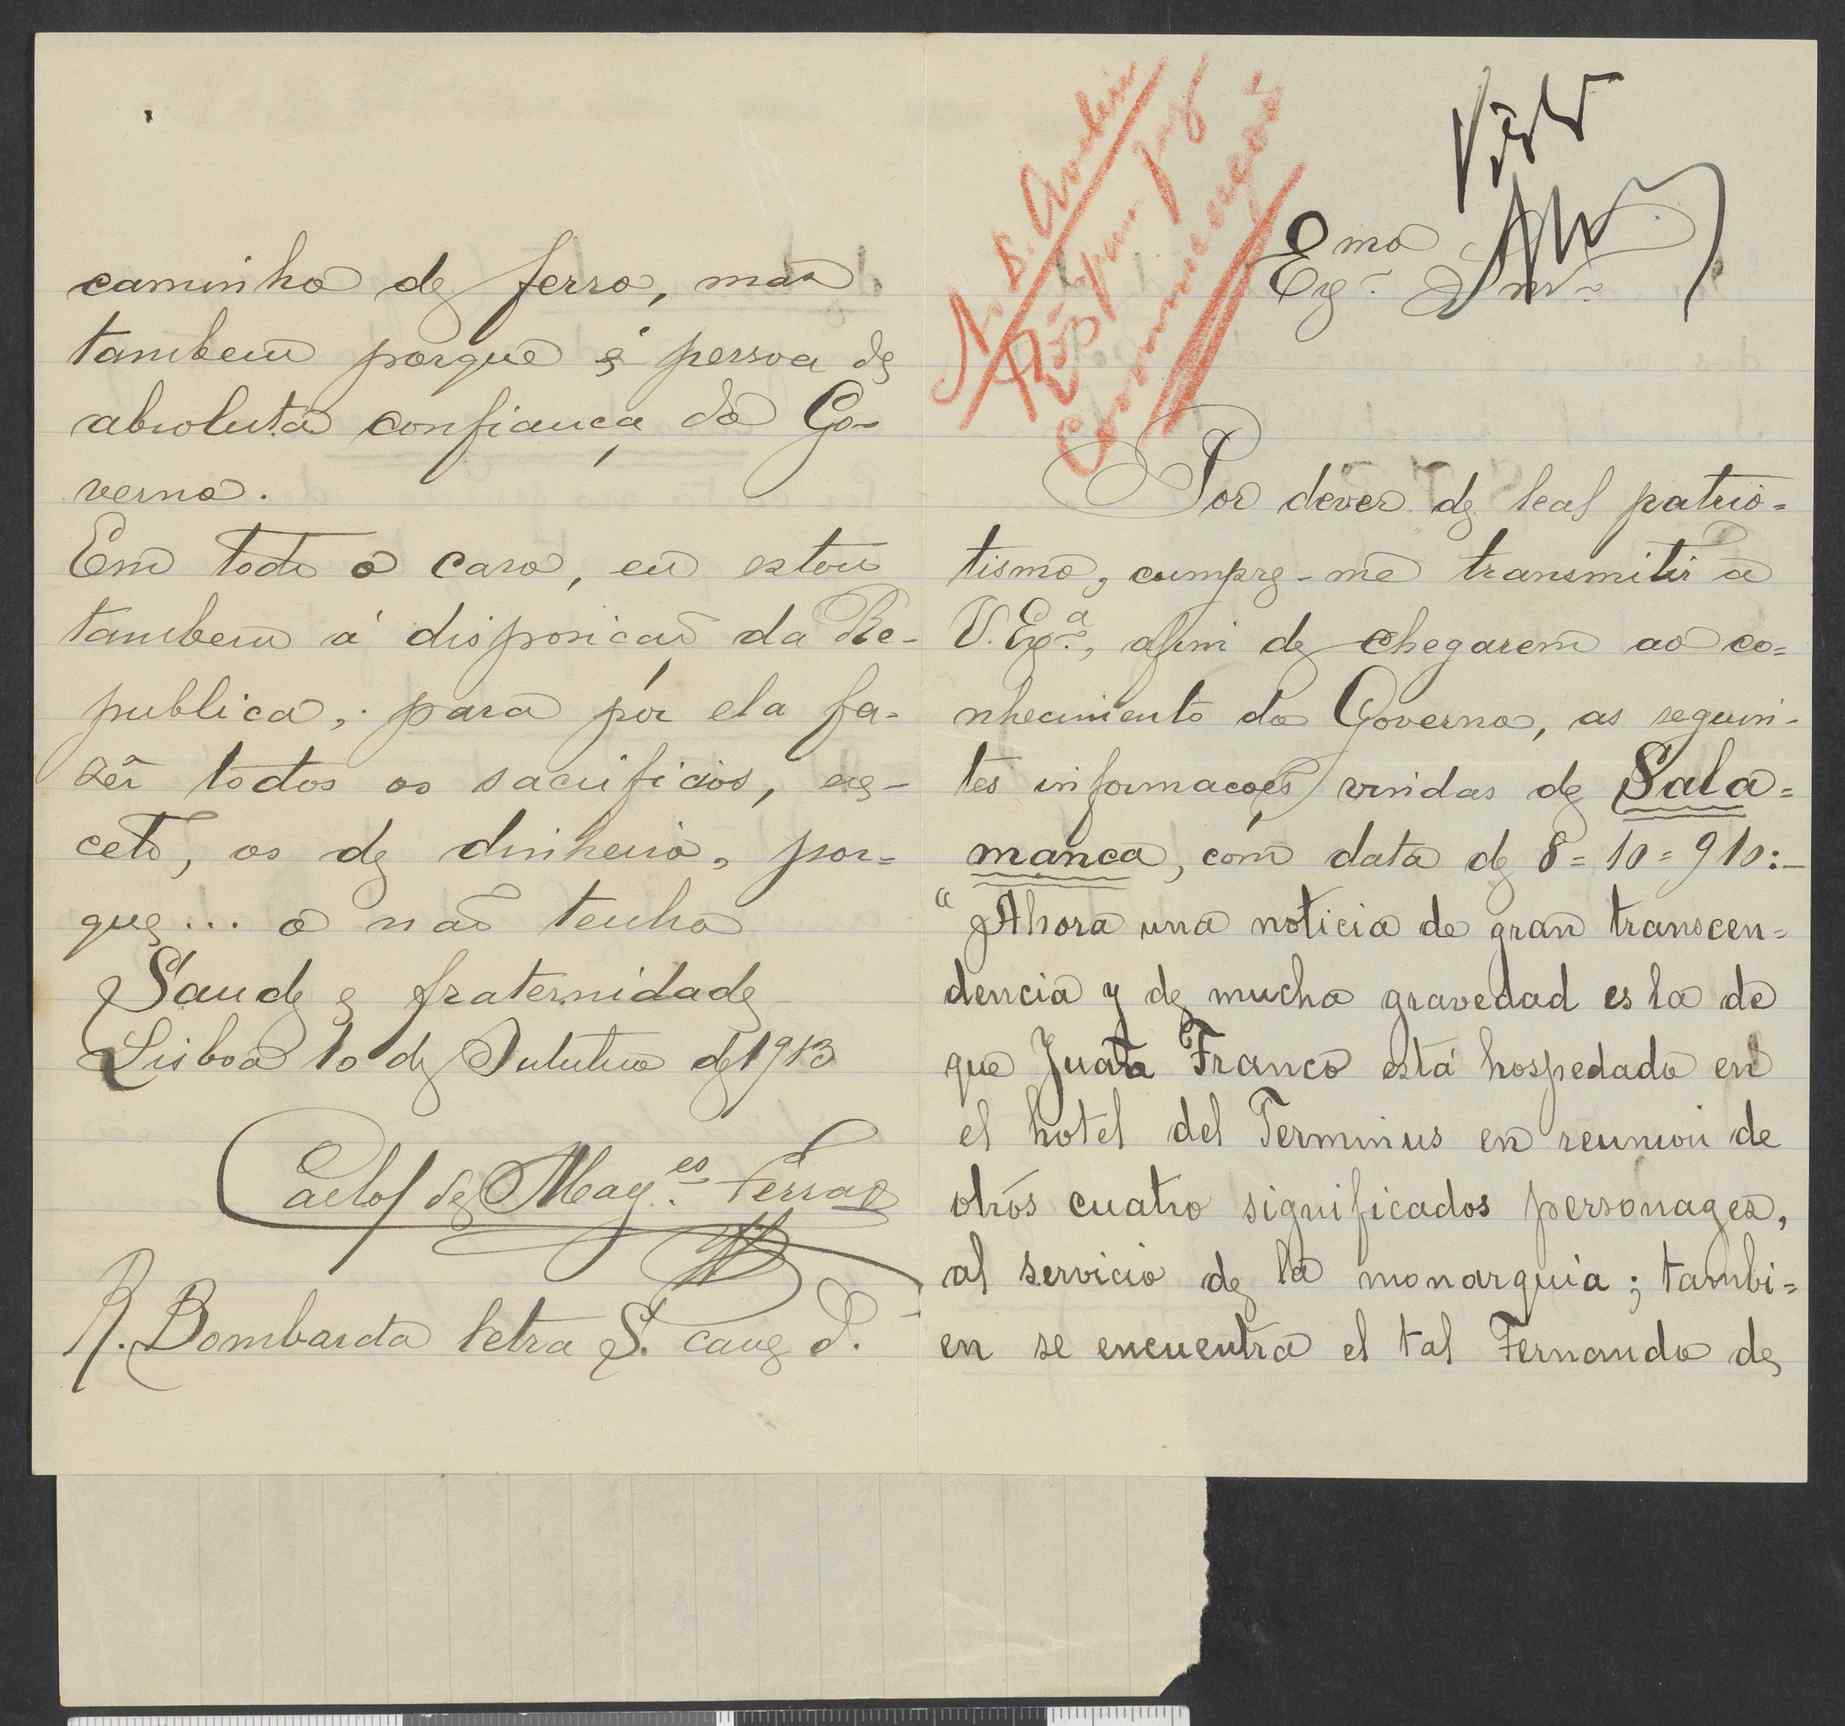 caminho de ferro, mas
tambem porque é pessoa de
absoluta confiança do Go-
verno.
Em todo o caso, eu estou
tambem á disposição da Re-
publica, para pór ela fa-
zêr todos os sacrificios, exs-
ceto, os de dinheiro, por=
que... o não tenho
Saude e fraternidade
Lisboa 10 de Outubro de 1913
Carlos de Mag.es Ferraz
R. Bombarda letra S. cave d.
Visto
Emo
Exº Snr.
Por dever de leal patrio=
tismo, cumpre-me transmitir a
V. Exª., afim de chegarem ao co=
nhecimento do Governo, as seguin-
tes informações vindas de Sala=
manca, com data de 8=10=910:-
"Ahora una noticia de gran transcen=
dencia y de mucha gravedad es la de
que Juan Franco está hospedado en
el hotel del Terminus en reunion de
otros cuatro significados personages,
al servicio de la monarquia; tambi=
en se encuentra el tal Fernando de